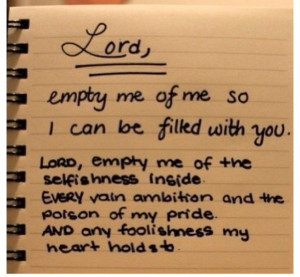 Lord,
empty me of me so
I can be filled with you.
LORD, empty me of the
selfishness inside.
EVERY vain ambition and the
poison of my pride.
AND any foolishness my
heart holds to.